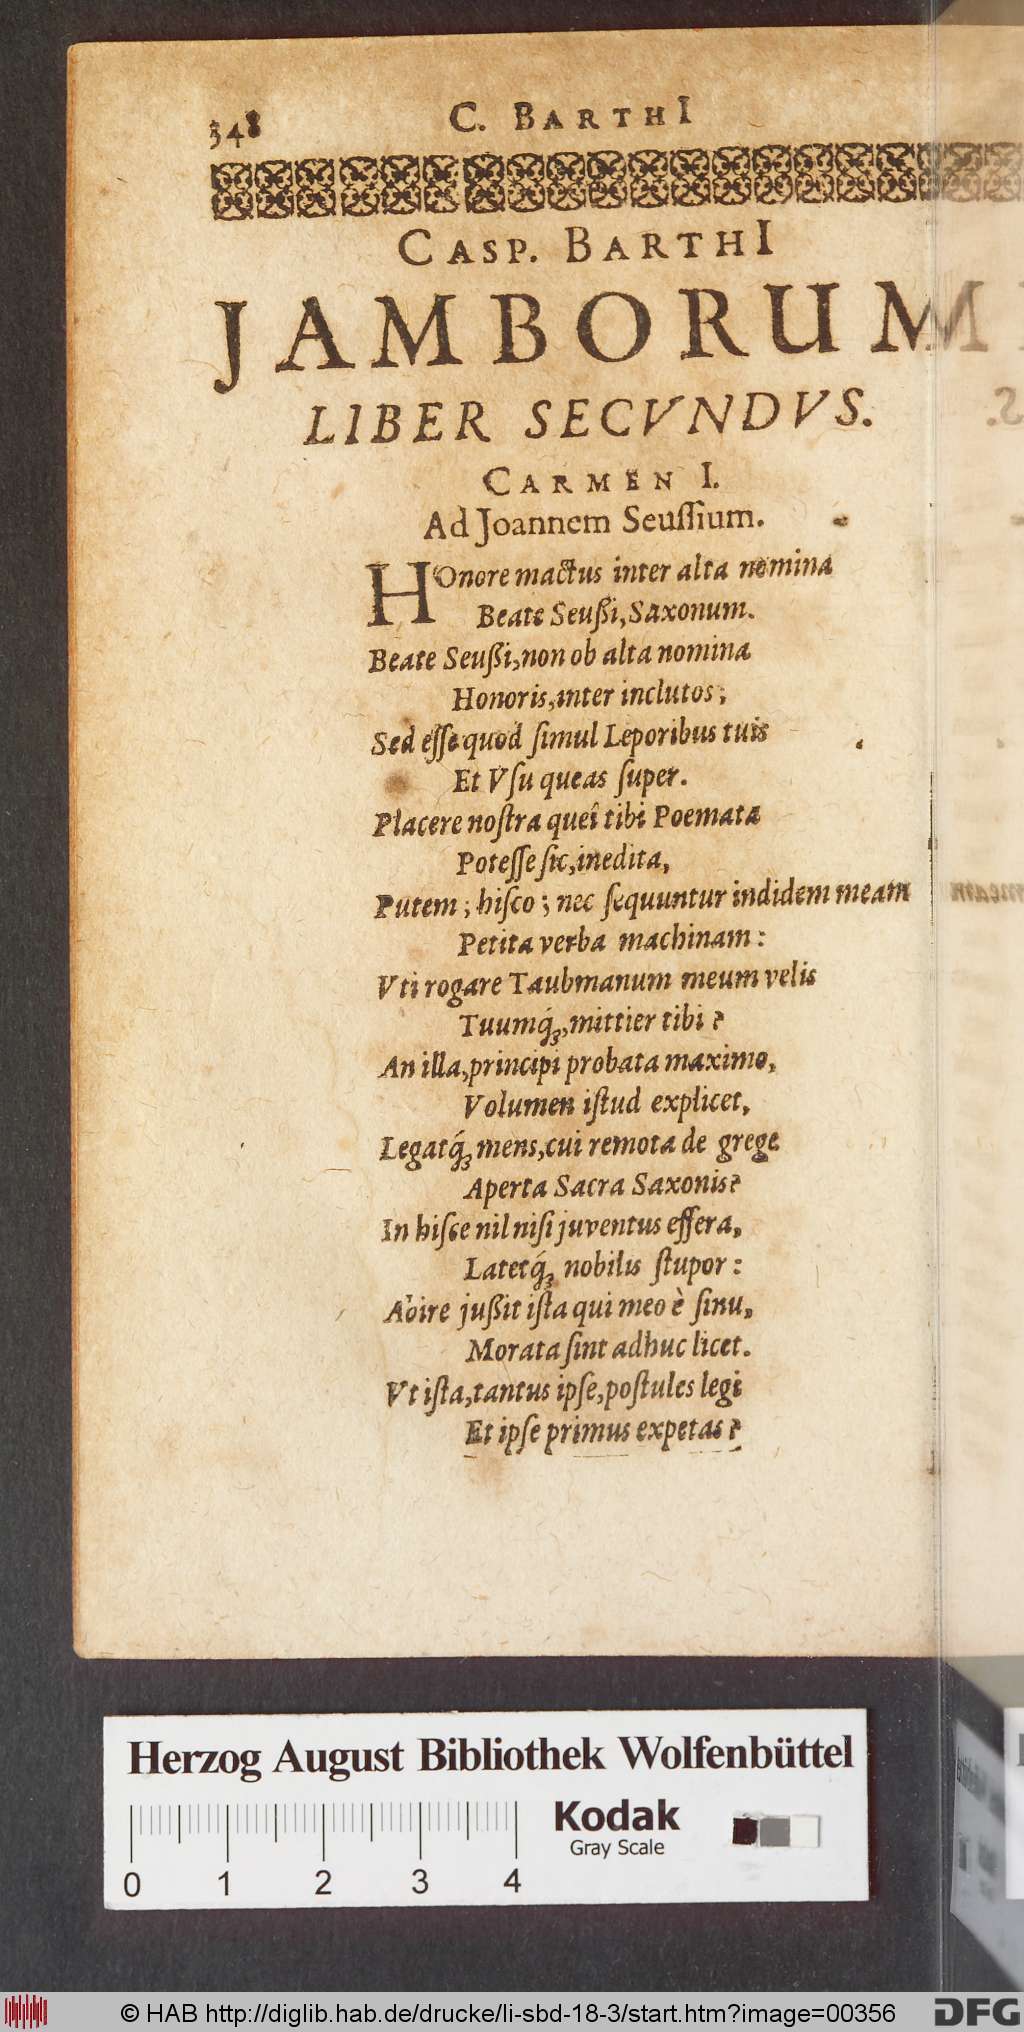 348 C. BARTHI
CASP. BARTHI
JAMBORUM
LIBER SECVNDVS.
CARMEN I.
Ad Joannem Seuſſium.
HOnore mactus inter alta nomina
Beate Seußi, Saxonum.
Beate Seußi, non ob alta nomina
Honoris, inter inclutos;
Sed eſſe quod ſimul Leporibus tuis
Et Vſu queas ſuper.
Placere noſtra queî tibi Poemata
Poteſſe ſic, inedita,
Putem; hiſco; nec ſequuntur indidem meam
Petita verba machinam:
Vti rogare Taubmanum meum velis
Tuumq́;, mittier tibi?
An illa, principi probata maximo,
Volumen iſtud explicet,
Legatq́; mens, cui remota de grege
Aperta Sacra Saxonis?
In hiſce nil niſi juventus effera,
Latetq́; nobilis ſtupor:
Abire jußit iſta qui meo è ſinu,
Morata ſint adhuc licet.
Vt iſta, tantus ipſe, poſtules legi
Et ipſe primus expetas?
Herzog August Bibliothek Wolfenbüttel
Kodak
Gray Scale
0 1 2 3 4
© HAB http://diglib.hab.de/drucke/li-sbd-18-3/start.htm?image=00356 DFG